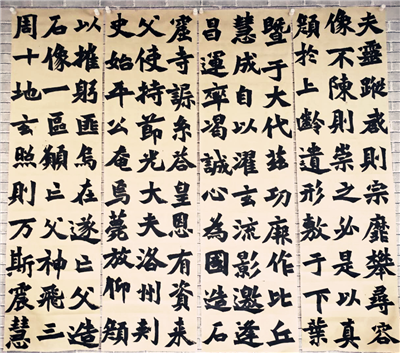 夫靈蹤惑則宗靡攀尋容
像不陳則崇之必是以真
顏於上齡遺形敷于下葉
暨于大代茲功厥作比丘
慧成自以濯玄流影邀逢
昌運率竭誠心為國造石
窟寺系答皇恩有資来
父使持節光大夫洛州刾
史始平公奄焉薨放仰顏
以摧躬匪烏在遂亡父造
石像一區願亡父神飛三
周十地玄照則万斯震慧